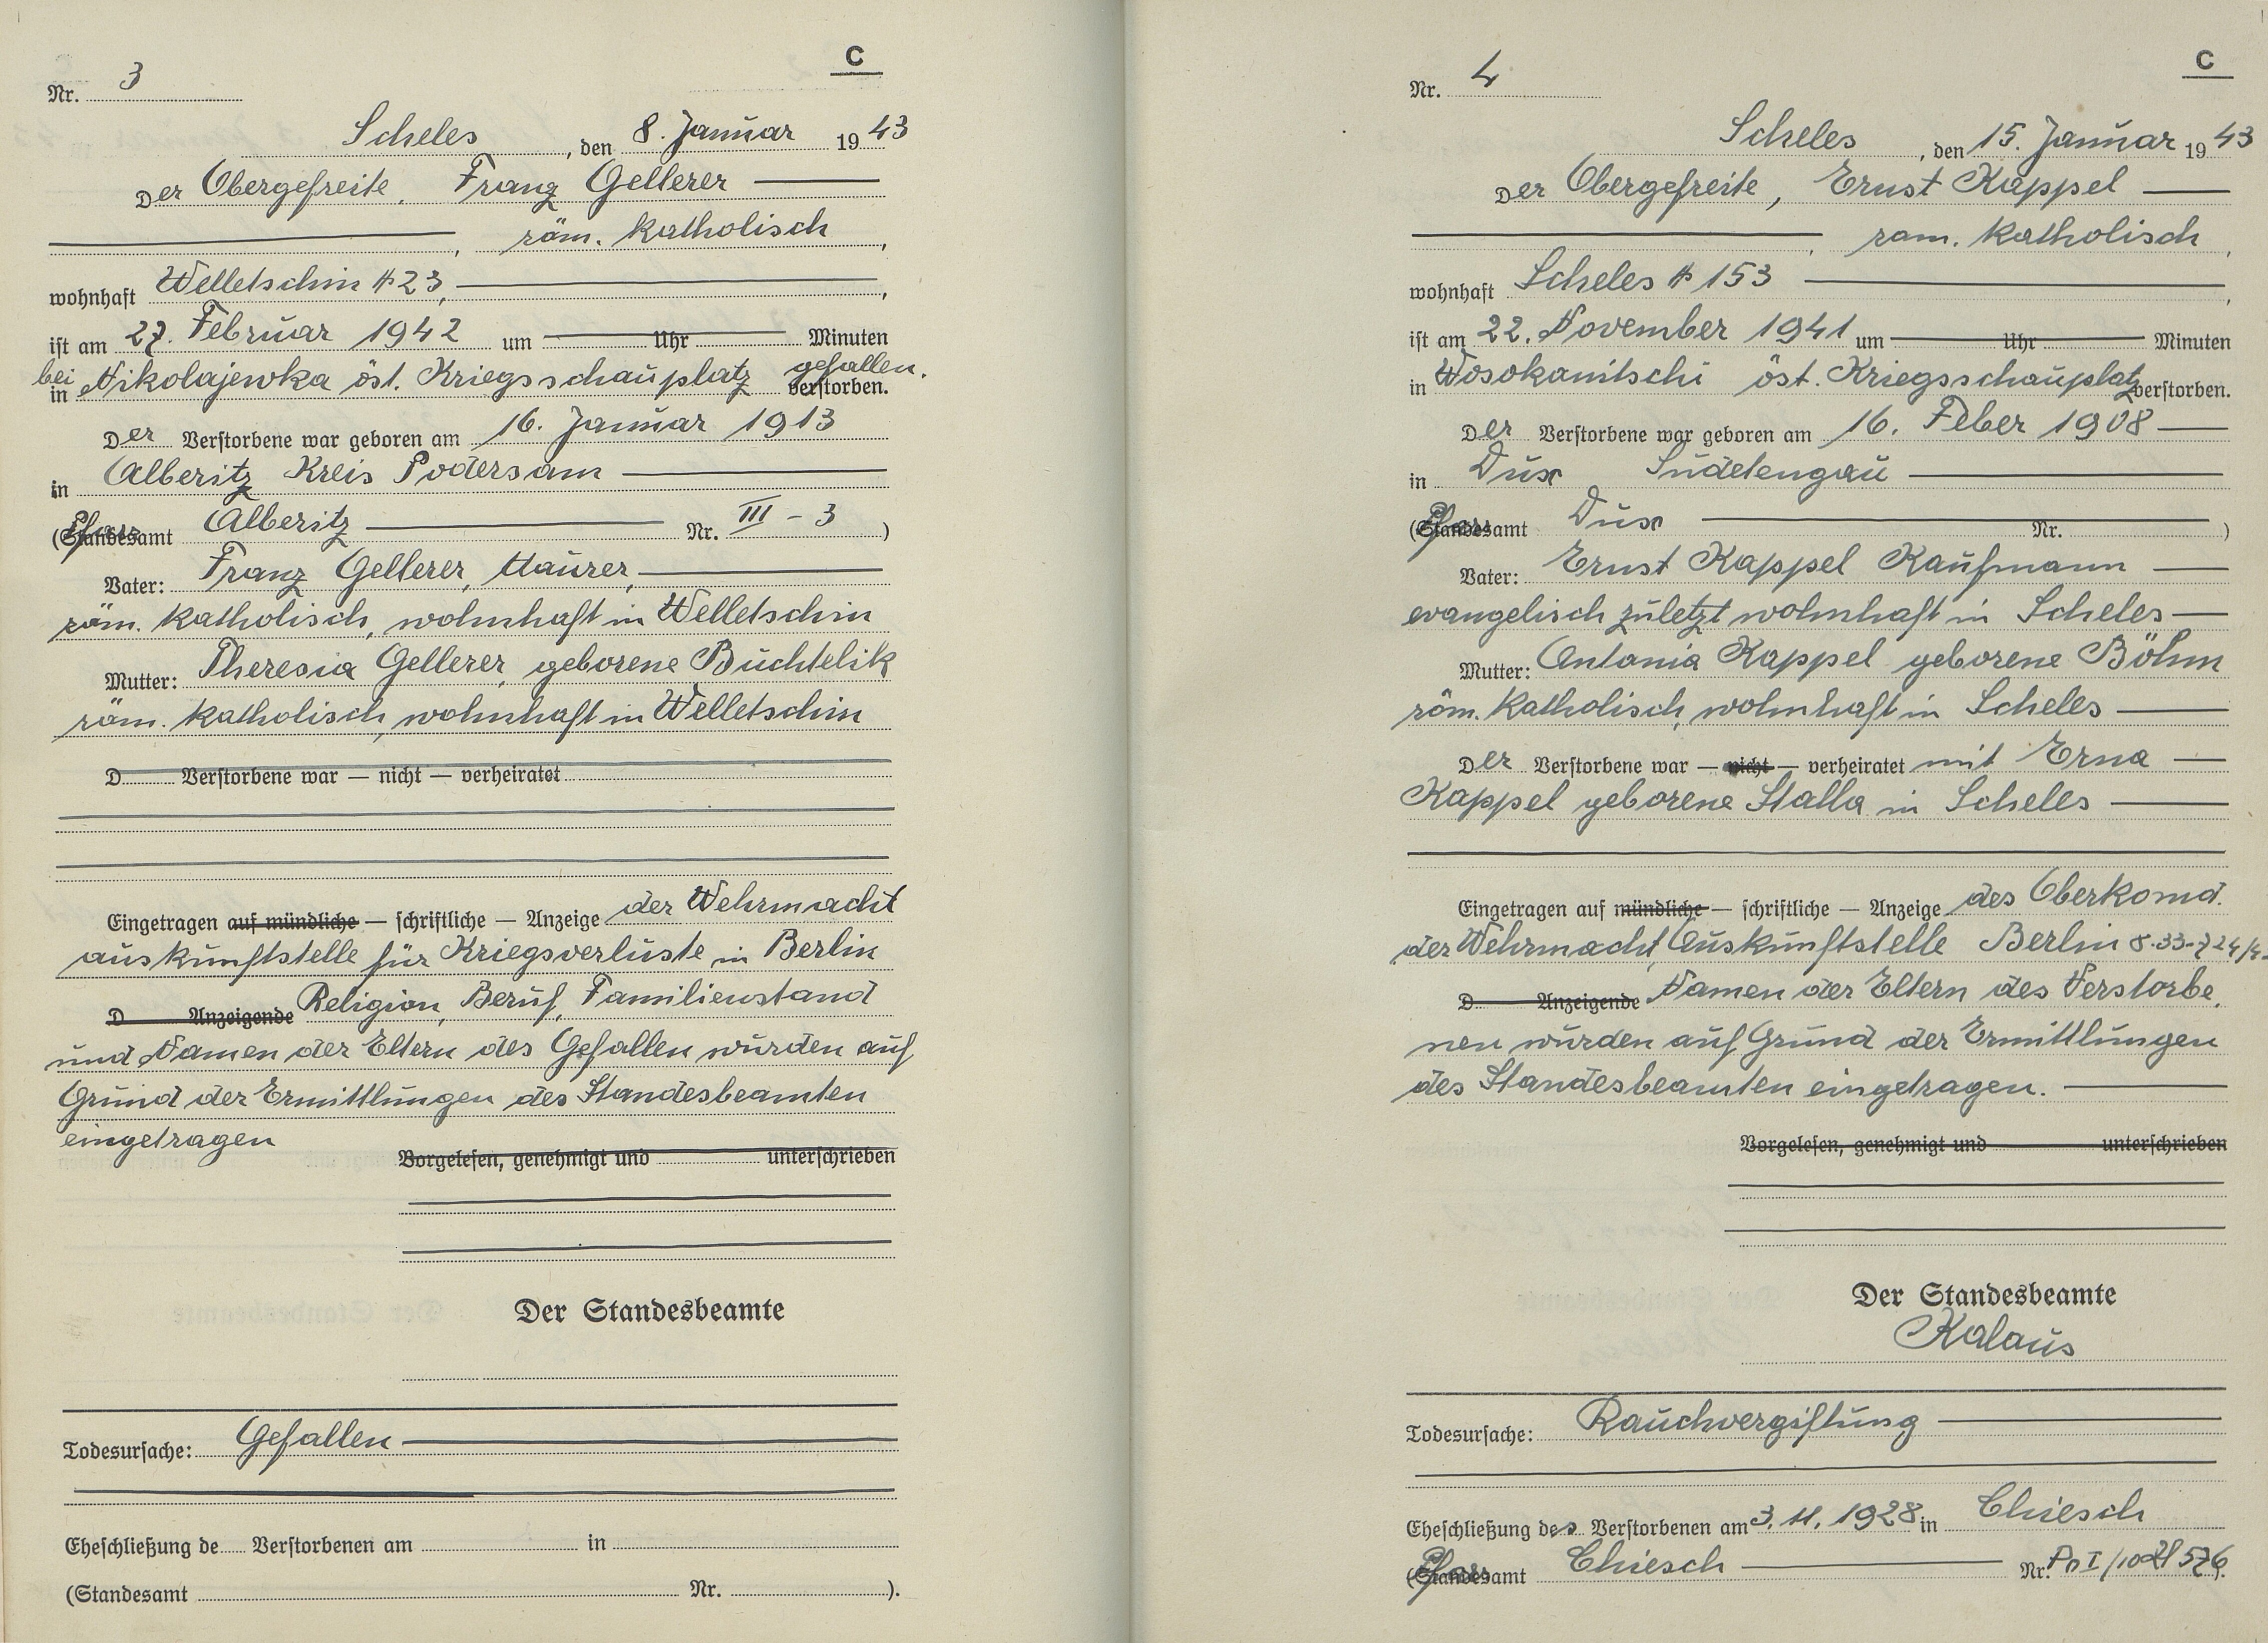 C
Nr. 3
Scheles, den 8. Januar 1943
Der Obergefreite, Franz Gellerer
röm. katholisch,
wohnhaft Welletschin # 23,
ist am 27. Februar 1942 um Uhr Minuten
bei gefallen.
in Nikolajewka öst. Kriegsschauplatz verstorben.
Der Verstorbene war geboren am 16. Januar 1913
in Alberitz Kreis Podersam
(Pfarr Standesamt Alberitz Nr. III - 3)
Vater: Franz Gellerer, Maurer,
röm. katholisch, wohnhaft in Welletschin
Mutter: Theresia Gellerer, geborene Buchtelik
röm. katholisch, wohnhaft in Welletschin
D Verstorbene war — nicht — verheiratet
Eingetragen auf mündliche — schriftliche — Anzeige der Wehrmacht
auskunftstelle für Kriegsverluste in Berlin
D Anzeigende Religion, Beruf, Familienstand
und Namen der Eltern des Gefallen wurden auf
Grund der Ermittlungen des Standesbeamten
eingetragen
Vorgelesen, genehmigt und unterschrieben
Der Standesbeamte
Todesursache: Gefallen
Eheschließung de Verstorbenen am in
(Standesamt Nr. ).
C
Nr. 4
Scheles, den 15. Januar 1943
Der Obergefreite, Ernst Kappel
rom. katholisch,
wohnhaft Scheles # 153
ist am 22. November 1941 um Uhr Minuten
in Wosokanitschi öst. Kriegsschauplatz verstorben.
Der Verstorbene war geboren am 16. Feber 1908
in Dux Sudetengau
(Pfarr Standesamt Dux Nr. )
Vater: Ernst Kappel Kaufmann
evangelisch zuletzt wohnhaft in Scheles
Mutter: Antania Kappel geborene Böhm
röm. katholisch, wohnhaft in Scheles
Der Verstorbene war — nicht — verheiratet mit Erna
Kappel geborene Stalla in Scheles
Eingetragen auf mündliche — schriftliche — Anzeige des Oberkomd.
der Wehrmacht, Auskunftstelle Berlin
D Anzeigende Namen der Eltern des Verstorbe,
nen wurden auf Grund der Ermittlungen
des Standesbeamten eingetragen.
Vorgelesen, genehmigt und unterschrieben
Der Standesbeamte
Kalaus
Todesursache: Rauchvergiftung
Eheschließung des Verstorbenen am 3. 11. 1928 in Chiesch
(Pfarr Standesamt Chiesch Nr. ).